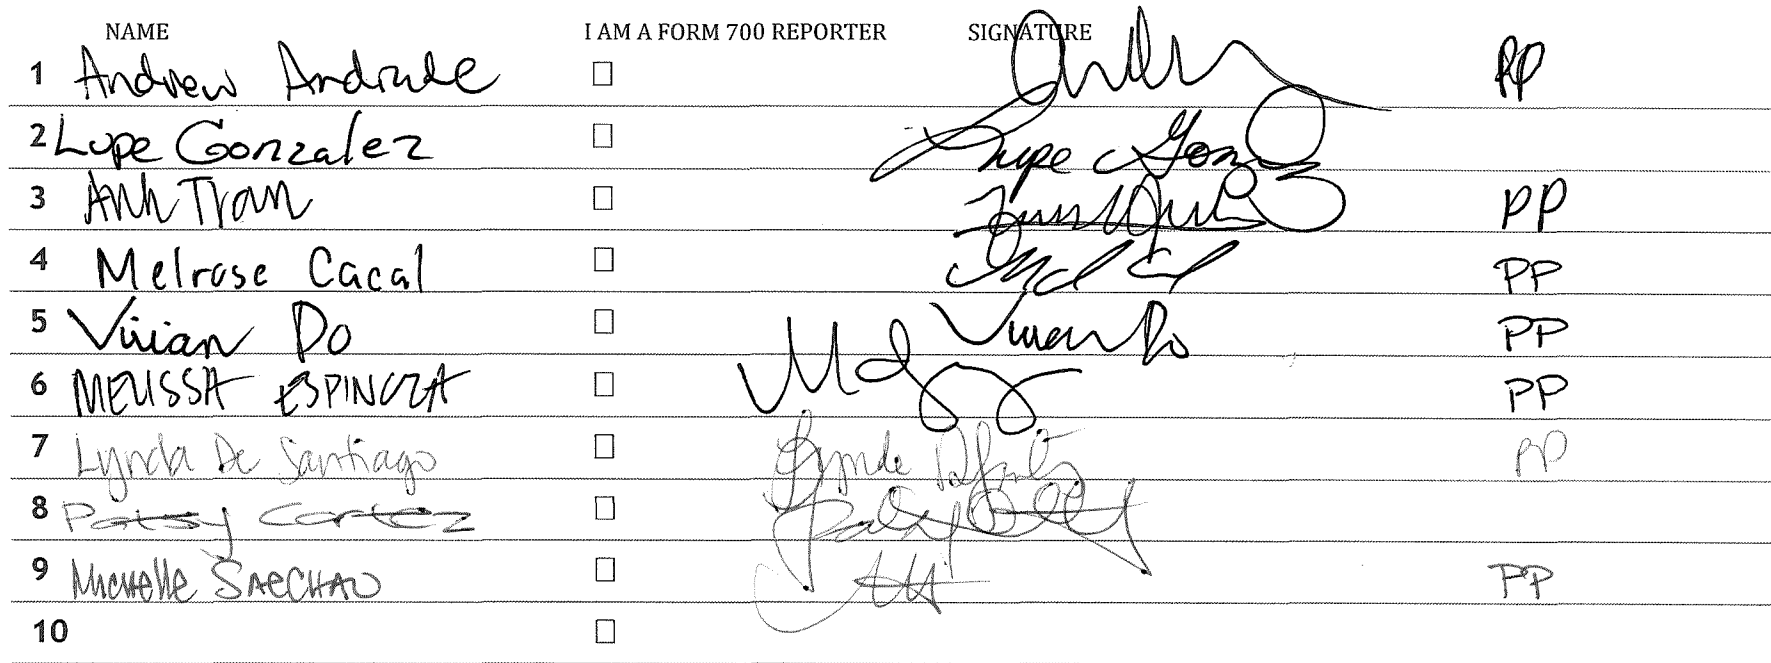 NAME I AM A FORM 700 REPORTER SIGNATURE
1 Andrew Andrade PP
2 Lupe Gonzalez Lupe Gonz
3 Anh Tran PP
4 Melrose Cacal PP
5 Vivian Do Vivian Do PP
6 MELISSA ESPINOZA PP
7 Lynda De Santiago Lynda PP
8 Patsy Cortez Patsy
9 Michelle SAECHAO PP
10